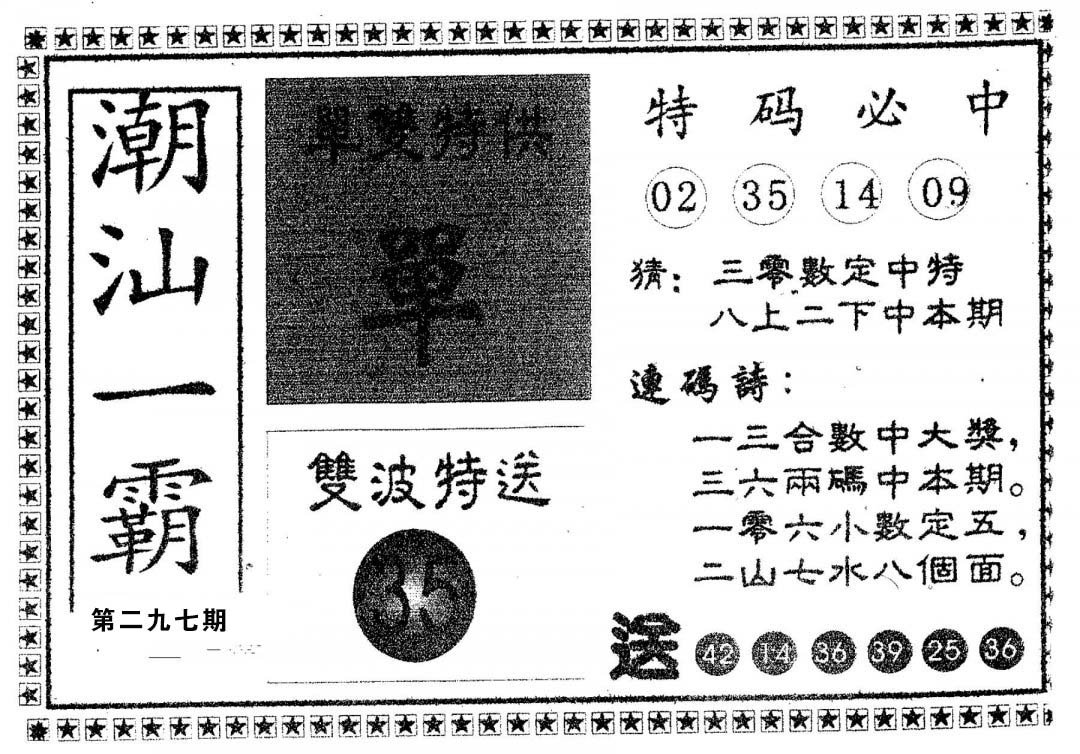 潮汕一霸
第二九七期
單雙特供
單
雙波特送
35
特码必中
02 35 14 09
猜：三零數定中特
八上二下中本期
連碼詩：
一三合數中大獎，
三六兩碼中本期。
一零六小數定五，
二山七水八個面。
送 42 14 36 39 25 36